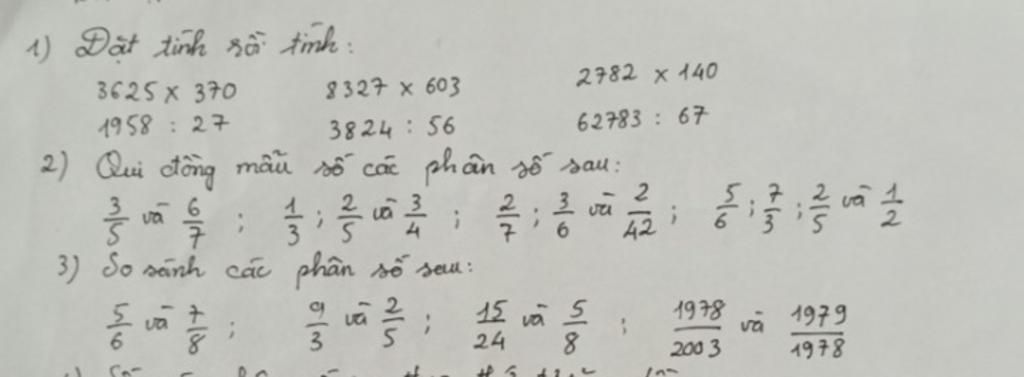 1) Đặt tính rồi tính:
3625 x 370 8327 x 603 2782 x 140
1958 : 27 3824 : 56 62783 : 67
2) Qui đồng mẫu số các phân số sau:
3/5 và 6/7 ; 1/3 ; 2/5 và 3/4 ; 2/7 ; 3/6 và 2/42 ; 5/6 ; 7/3 ; 2/5 và 1/2
3) So sánh các phân số sau:
5/6 và 7/8 ; 9/3 và 2/5 ; 15/24 và 5/8 ; 1978/2003 và 1979/1978